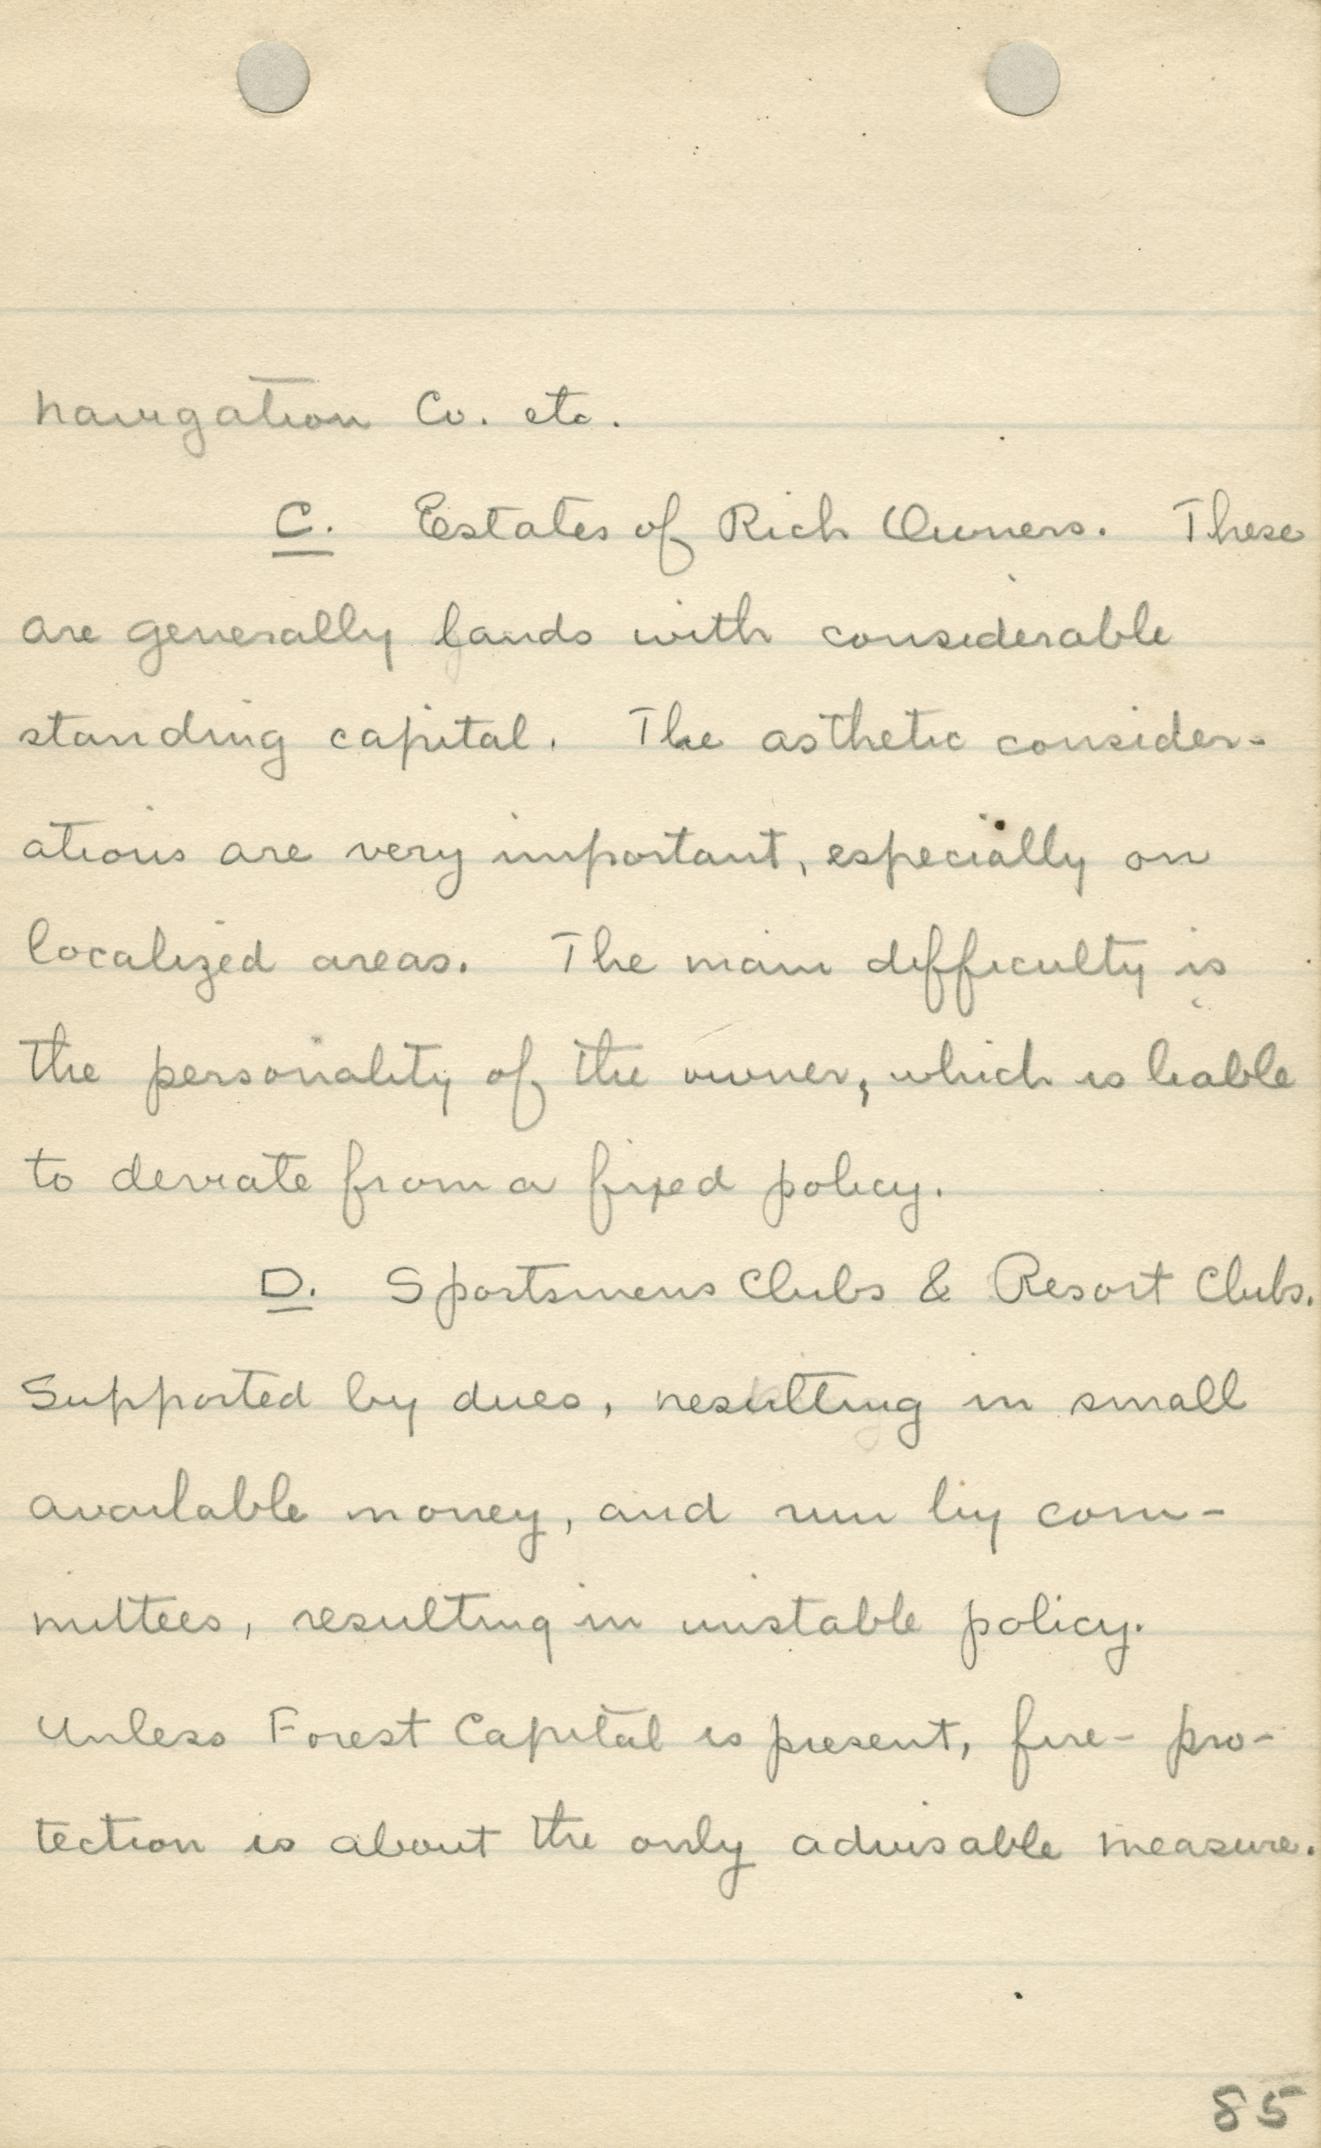 Navigation Co. etc.
C. Estates of Rich Owners. These
are generally lands with considerable
standing capital. The asthetic consider-
ations are very important, especially on
localized areas. The main difficulty is
the personality of the owner, which is liable
to deviate from a fixed policy.
D. Sportsmens Clubs & Resort Clubs.
Supported by dues, resulting in small
available money, and run by com-
mittees, resulting in unstable policy.
Unless Forest Capital is present, fire-pro-
tection is about the only advisable measure.
85